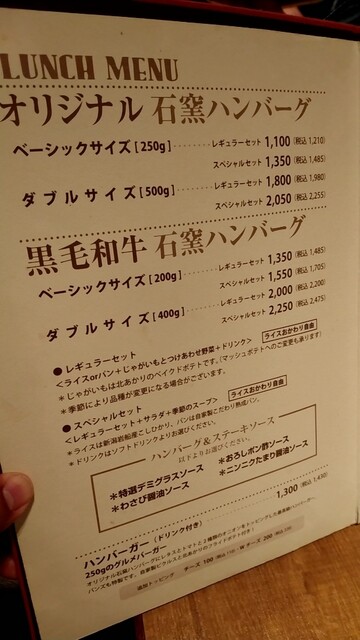 LUNCH MENU
オリジナル 石窯ハンバーグ
ベーシックサイズ[250g] レギュラーセット 1,100 (税込 1,210)
スペシャルセット 1,350 (税込 1,485)
ダブルサイズ[500g] レギュラーセット 1,800 (税込 1,980)
スペシャルセット 2,050 (税込 2,255)
黒毛和牛 石窯ハンバーグ
ベーシックサイズ[200g] レギュラーセット 1,350 (税込 1,485)
スペシャルセット 1,550 (税込 1,705)
ダブルサイズ[400g] レギュラーセット 2,000 (税込 2,200)
スペシャルセット 2,250 (税込 2,475)
●レギュラーセット ライスおかわり自由
<ライスorパン+じゃがいもとつけあわせ野菜+ドリンク>
*じゃがいもは北あかりのベイクドポテトです。(マッシュポテトへのご変更も承ります)
*季節により品種が変更になる場合がございます。
●スペシャルセット ライスおかわり自由
<レギュラーセット+サラダ+季節のスープ>
*ライスは新潟岩船産こしひかり、パンは自家製こだわり熟成パン。
*ドリンクはソフトドリンクよりお選びください。
ハンバーグ&ステーキソース
以下よりお選びください。
*特選デミグラスソース *おろしポン酢ソース
*わさび醤油ソース *ニンニクたまり醤油ソース
ハンバーガー (ドリンク付き) 1,300 (税込 1,430)
250gのグルメバーガー
オリジナル石窯ハンバーグにレタスとトマトと2種類のオニオンをトッピングした
バンズも特製です。自家製ピクルスと北あかりのフライドポテト付き!
追加トッピング チーズ 100 (税込 110)・Wチーズ 200 (税込 220)